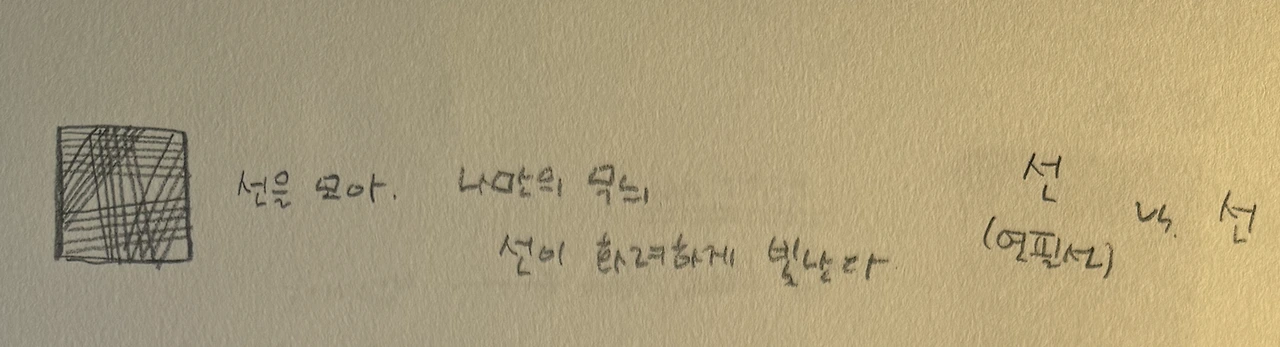 선을 모아. 나만의 무늬
선이 화려하게 빛난다
선 vs. 선
(연필선)